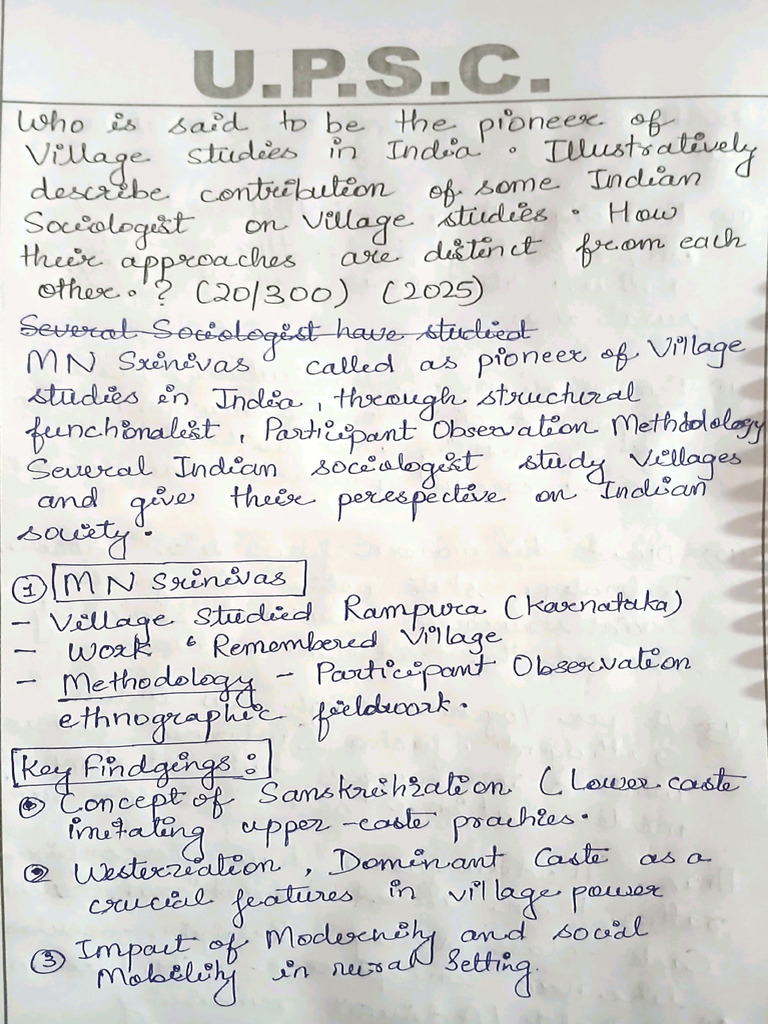 U.P.S.C.
Who is said to be the pioneer of
Village studies in India. Illustratively
describe contribution of some Indian
Sociologist on Village studies. How
their approaches are distinct from each
other.? (20/300) (2025)
Several Sociologist have studied
MN Srinivas called as pioneer of Village
studies in India, through structural
functionalist, Participant Observation Methodology
Several Indian sociologist study Villages
and give their perespective on Indian
society.
① MN Srinivas
- Village Studied Rampura (Karnataka)
- Work : Remembered Village
- Methodology - Participant Observation
ethnographic fieldwork.
Key Findgings :
① Concept of Sanskritization (Lower caste
imitating upper-caste practies.
② Westerziation, Dominant Caste as a
crucial features in village power
③ Impact of Modernity and social
Mobility in rural Setting.